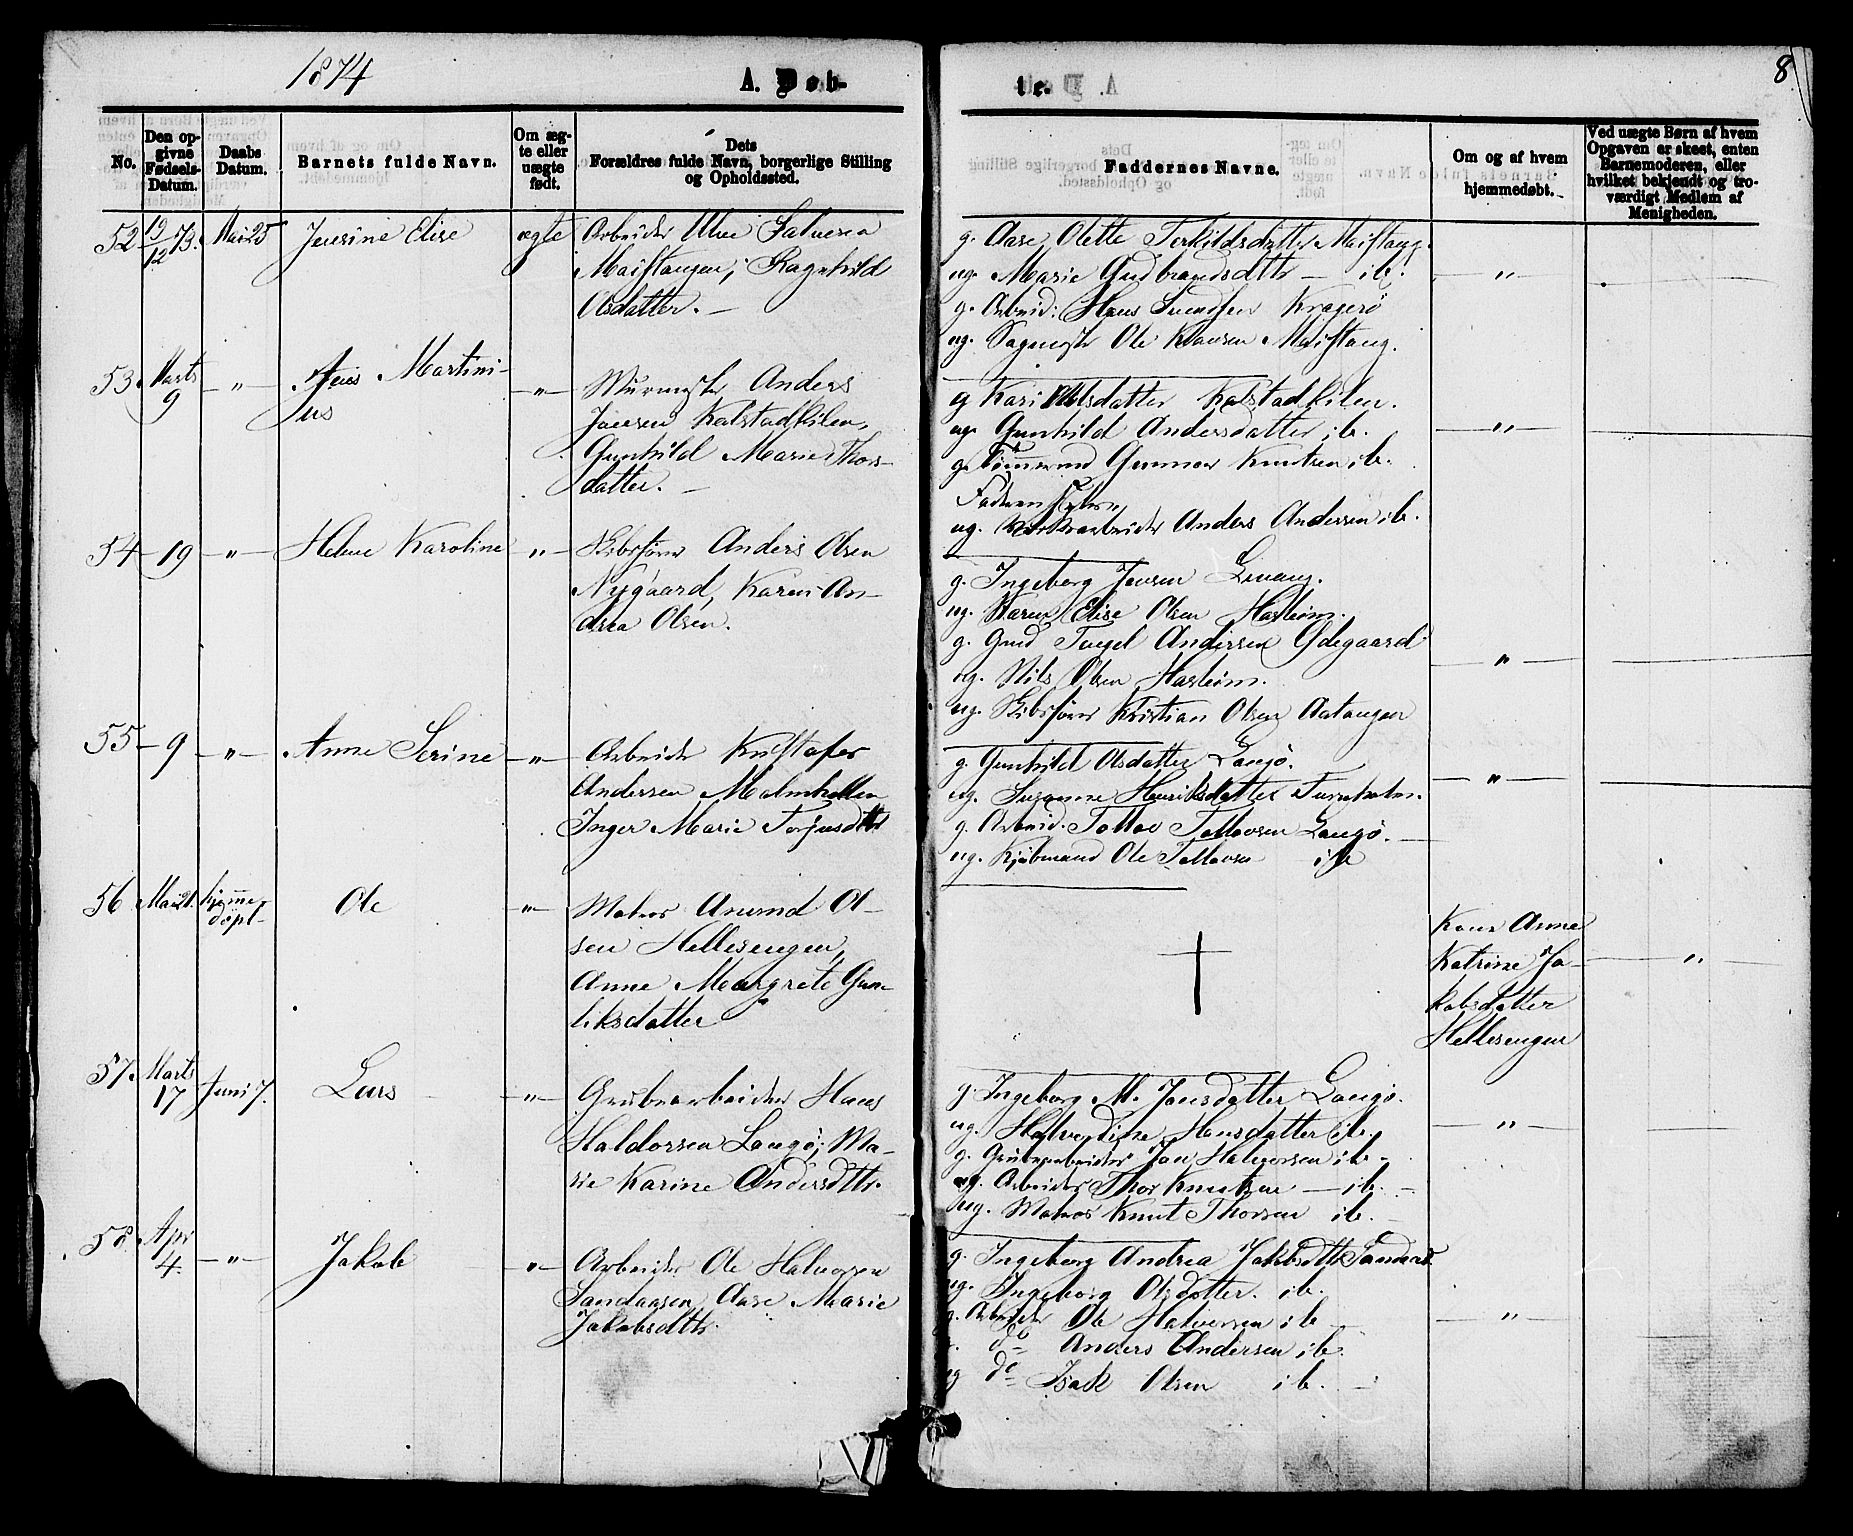 1874
A. Døb-
te.
8
No.
Den op-
givne
Fødsels-
Datum.
Daabs
Datum.
Barnets fulde Navn.
Om æg-
te eller
uægte
født.
Dets
Forældres fulde Navn, borgerlige Stilling
og Opholdssted.
Faddernes Navne.
Om og af hvem
hjemmedøbt.
Ved uægte Børn af hvem
Opgaven er skeet, enten
Barnemoderen, eller
hvilket bekjendt og tro-
værdigt Medlem af
Menigheden.
52 19/12 73. Mai 25 Jensine Elise ægte Arbeider Ulve Halvesen
Maistangen; Ragnhild
Olsdatter. —
g. Aase Olette Terkildsdatter Maistang.
ug. Marie Gudbrandsdtr — ib. — " —
g. Arbeid: Hans Svendsen Kragerø
ug. Ole Klausen Maistang.
53. Marts
9 — " — Martini-
us — " — Murmstr Anders
Jansen Kalstadkilen,
Gunhild Marie Thors-
datter. —
g Kari Olsdatter Kalstadkilen.
ug. Gunhild Andersdatter ib. — " —
g. Tømmermd Gunnar Knutsen ib.
Faderen Selv.
ug. Anders Andersen ib.
54 — 19 — " — Helene Karoline — " — Skibsfører Anders Olsen
Nygaard, Karen An-
drea Olsen.
g. Ingeborg Jensen
ug. Karen Elise Olsen
g. Gmd Andersen Ødegaard — " —
ug. Nils Olsen
ug. Skibsfører Kristian Olsen Aatangen
55 — 9 — " — Anne Serine — " — Arbeider Kristofer
Andersen Malmhellen
Inger Marie Torjusdtr
g. Gunhild Olsdatter Langø.
ug. Susanne Henriksdatter Furuholm. — " —
g. Arbeid. Tallov Tallovsen Langø. —
ug. Kjøbmand Ole Tallovsen ib
56 Mai 21. hjemme-
døpt Ole — " — Matros Anund Ol-
sen Hellesengen,
Anne Margrete Gun-
liksdatter
†
Kone Anne
Katrine Ja-
kobsdatter
Hellesengen
— " —
57. Marts
17 Juni 7. Lars — " — Grubearbeider Hans
Haldorsen Langø; Ma-
rie Karine Andersdtr.
g. Ingeborg M. Jansdatter Langø.
ug. Halvordine Hansdatter ib. — " —
g. Grubearbeider Jan Halvorsen ib —
ug. Arbeider Thor Knutsen — ib. —
ug. Matros Knut Thorsen ib. —
58. Apr
4. — " — Jakob — " — Arbeider Ole Halvorsen
Sandaasen, Aase Marie
Jakobsdtr.
g. Ingeborg Andrea Jakobsdtr Sandaas
ug. Ingeborg Olsdatter. ib.
g. Arbeider Ole Halvorsen ib — — " —
do Anders Andersen ib.
ug do Isak Olsen ib. —